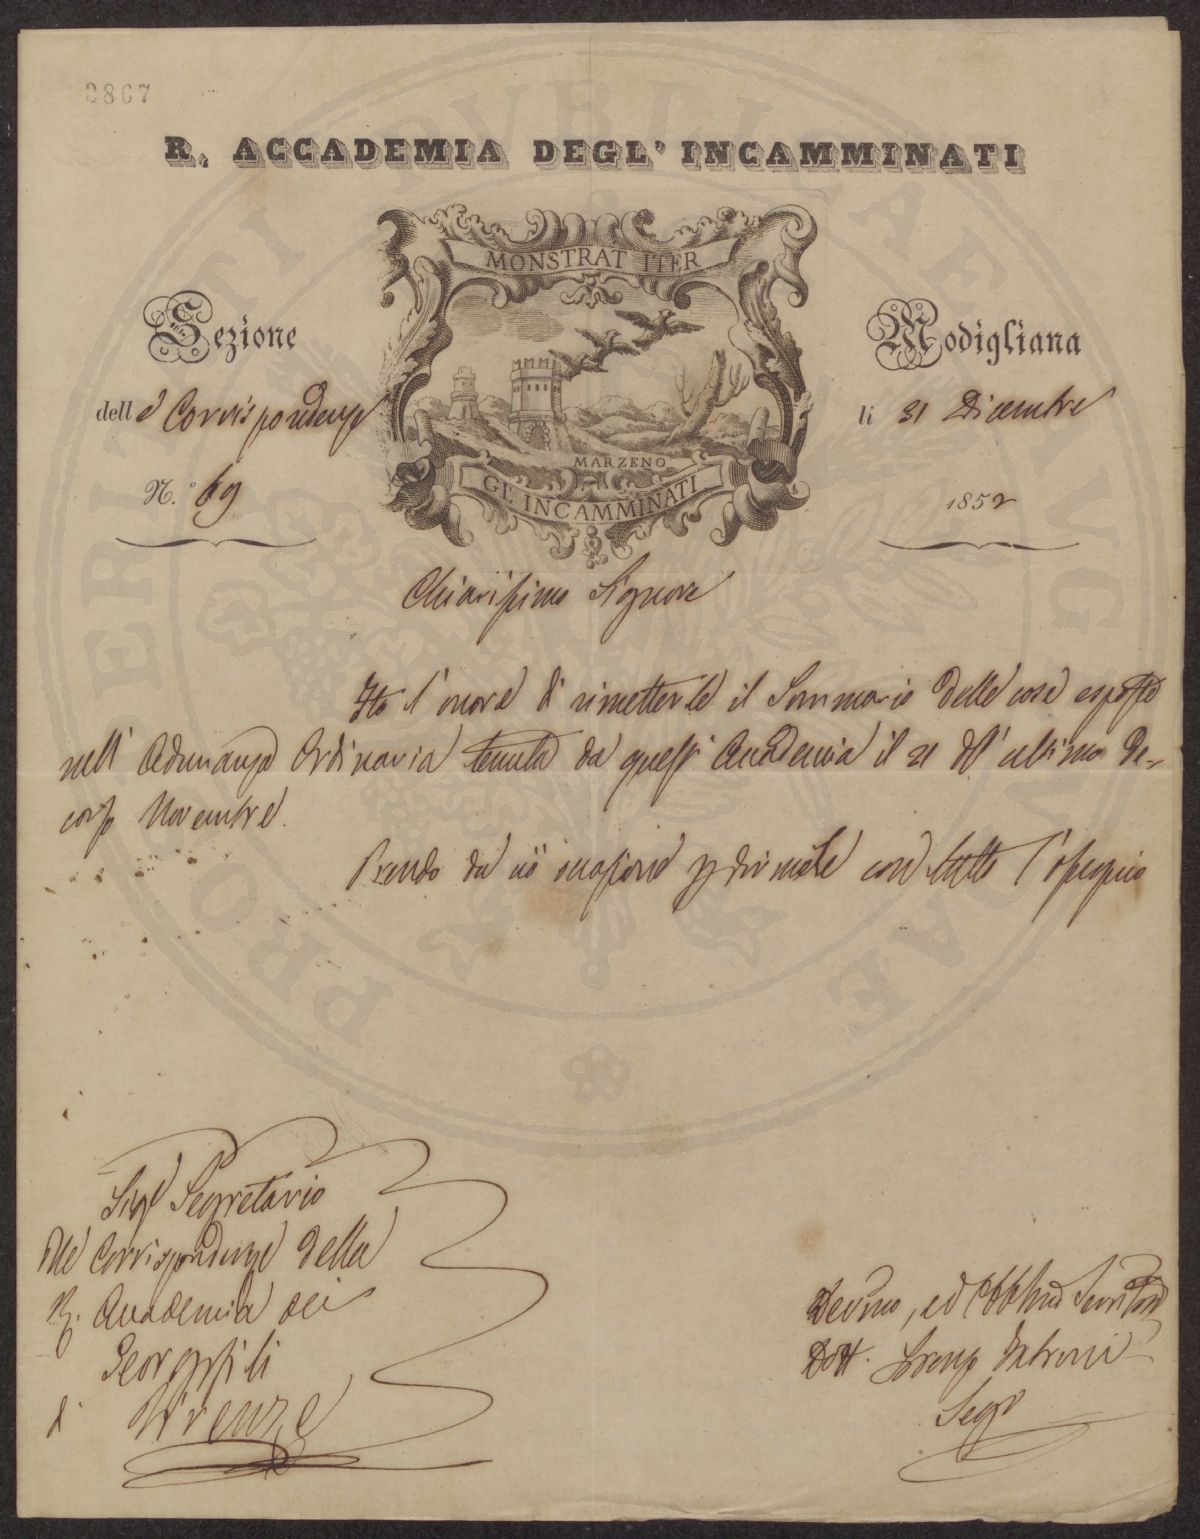 3867
R. ACCADEMIA DEGL' INCAMMINATI
MONSTRAT ITER
Sezione
dell e Corrispondenze
N.° 69
MARZENO
GL' INCAMMINATI
Modigliana
li 31 Dicembre
1852
Chiarissimo Signore
Ho l'onore di rimetterle il Sommario delle cose esposte
nell' Adunanza Ordinaria tenuta da quest' Accademia il 21 dell' ultimo De-
corso Novembre.
Prendo da ciò occasione per dirmele con tutto l'ossequio
Sigr Segretario
delle Corrispondenze della
R. Accademia dei
Georgofili
di Firenze
Devmo, ed Obblmo Servitore
Dott. Lorenzo
Segr
PROSPERITATI PVBLICAE AVGENDAE